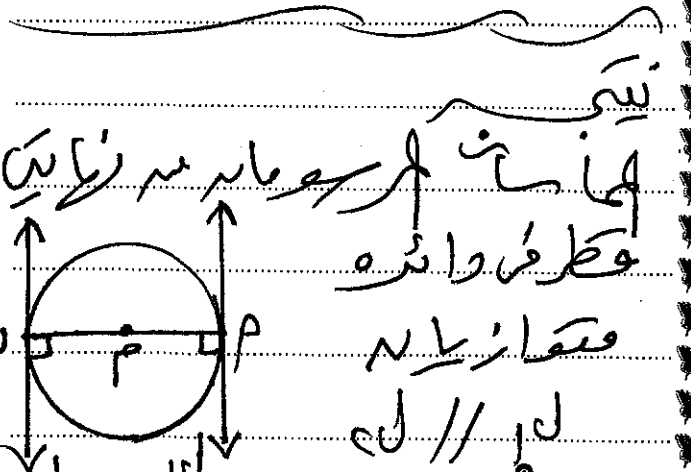 نتيجة
المماسان المرسومان من نهايتى
قطر فى دائرة
متوازيان
ل١ // ل٢
م